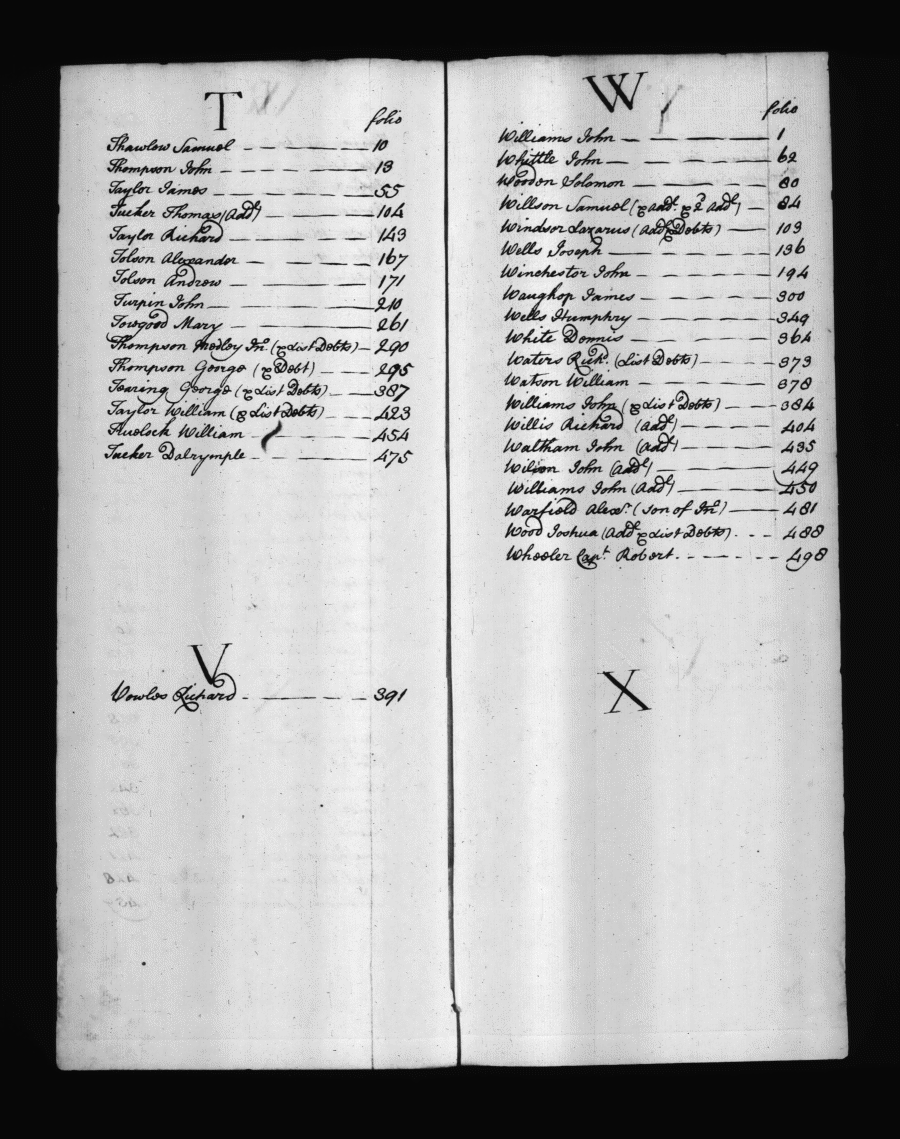 T
folio
Thawlow Samuel 10
Thompson John 13
Taylor James 55
Tucker Thomas (Addl) 104
Taylor Richard 143
Tolson Alexander 167
Tolson Andrew 171
Turpin John 210
Towgood Mary 261
Thompson Medley Jnr. (& List Debts) 290
Thompson George (& Debt) 295
Tearing George (& List Debts) 387
Taylor William (& List Debts) 423
William 454
Tucker Dalrymple 475
V
Vowles Richard 391
W
folio
Williams John 1
Whittle John 62
Wooden Solomon 80
Willson Samuel (& Addl. & 2d Addl) 84
Windsor Lazarus (Addl & Debts) 103
Wells Joseph 136
Winchester John 194
Waughop James 300
Wells Humphry 349
White Dennis 364
Waters Richd. (List Debts) 373
Watson William 378
Williams John (& List Debts) 384
Willis Richard (Addl) 404
Waltham John (Addl) 435
Wilson John (Addl) 449
Williams John (Addl) 450
Warfield Alexr. (Son of Jno) 481
Wood Joshua (Addl & List Debts) 488
Wheeler Capt. Robert 498
X